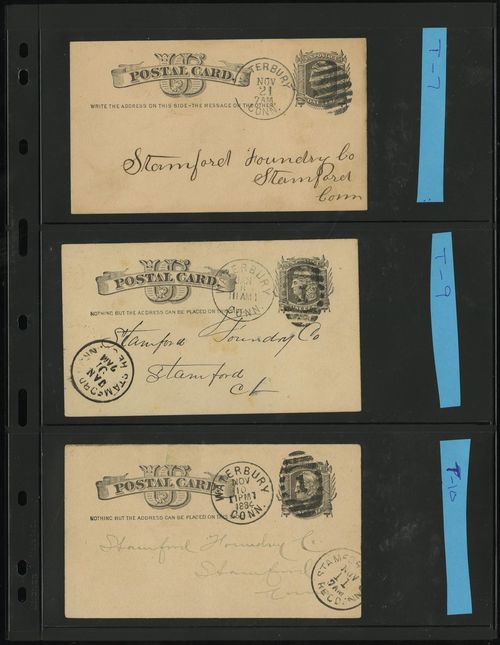 T-7
POSTAL CARD.
WATERBURY
NOV
21
7AM
CONN.
WRITE THE ADDRESS ON THIS SIDE-THE MESSAGE ON THE OTHER
Stamford Foundry Co
Stamford
Conn
T-9
POSTAL CARD.
WATERBURY
11AM
CONN.
NOTHING BUT THE ADDRESS CAN BE PLACED ON THIS
Stamford Foundry Co
Stamford
Ct
STAMFORD
JAN
31
9AM
REC'D.
T-10
POSTAL CARD.
WATERBURY
NOV
10
11PM
CONN.
NOTHING BUT THE ADDRESS CAN BE PLACED ON THIS
Stamford Foundry Co
Stamford
Conn
STAMFORD
NOV
11
7AM
REC'D.